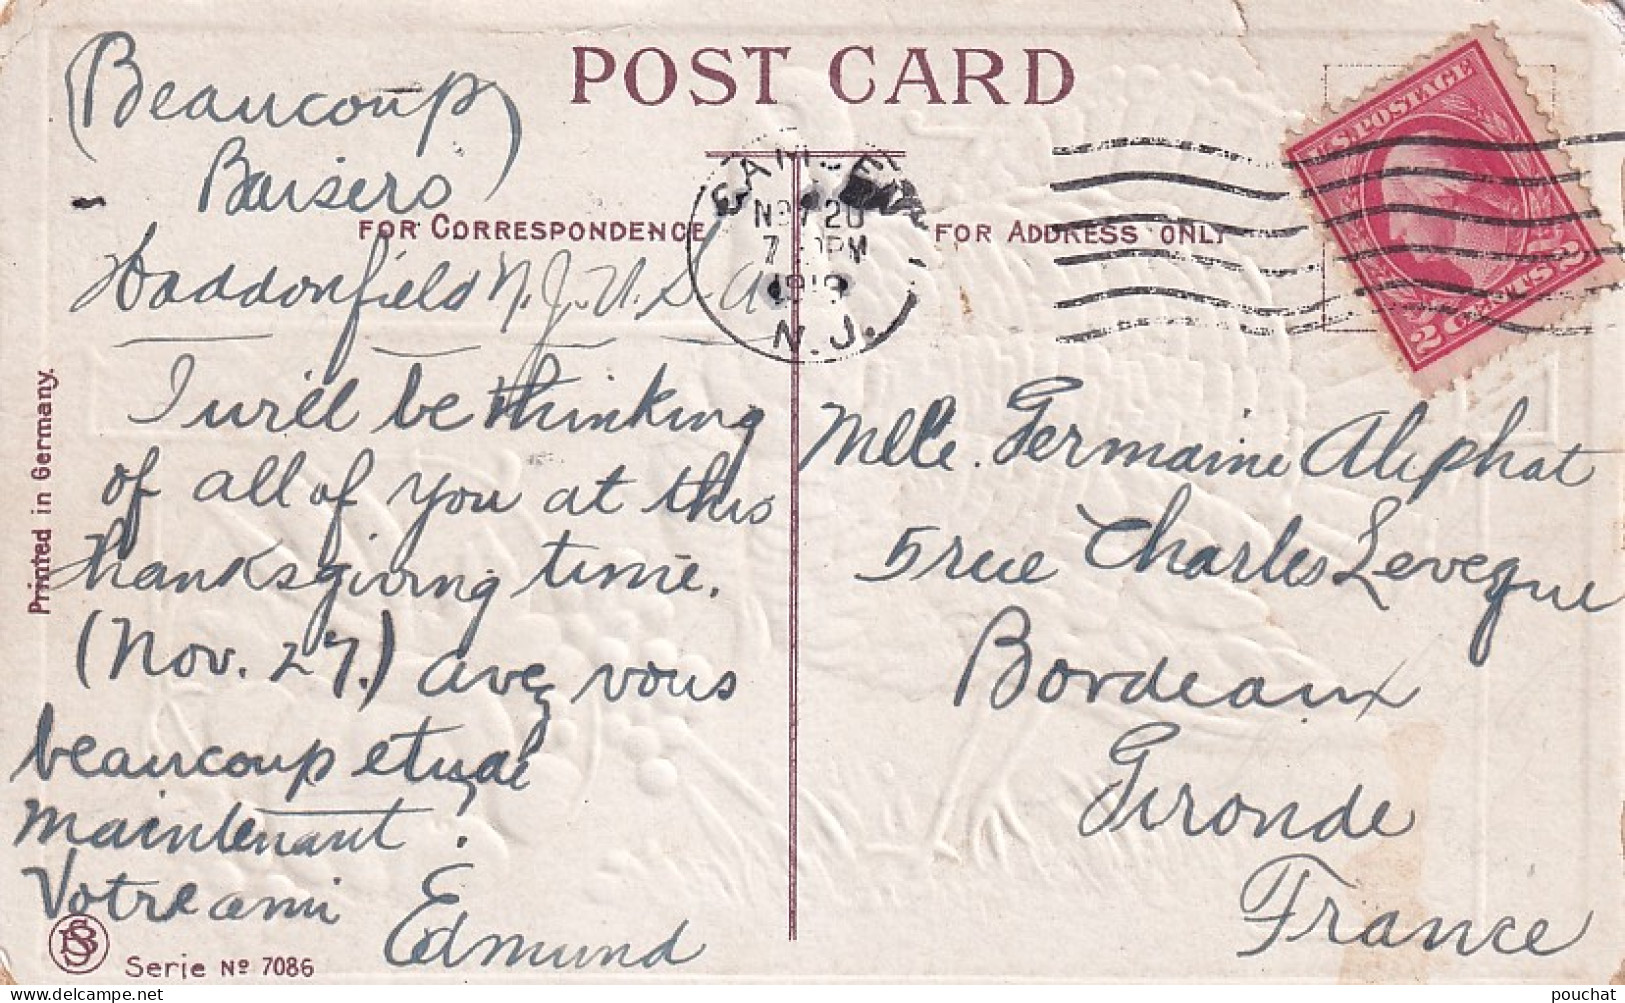 POST CARD
(Beaucoup
Baisers)
FOR CORRESPONDENCE
FOR ADDRESS ONLY
CAMDEN
NOV 20
PM
1919
N.J.
U.S. POSTAGE
2 CENTS 2
Haddonfield N.J. U.S.A.
I will be thinking
of all of you at this
thanksgiving time.
(Nov. 27.) avez vous
beaucoup etude
maintenant?
Votre ami
Edmund
Melle. Germaine Aliphat
5 rue Charles Leveque
Bordeaux
Gironde
France
Printed in Germany.
Serie Nº 7086
pouchat